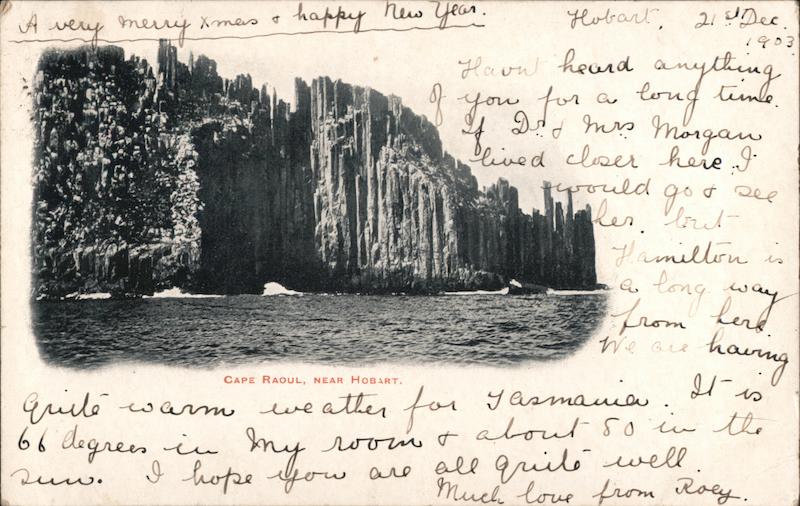 A very merry Xmas & happy New Year.
Hobart, 21st Dec.
1903
Havnt heard anything
of you for a long time.
If Dr & Mrs Morgan
lived closer here I
would go & see
her. but
Hamilton is
a long way
from here
We are having
CAPE RAOUL, NEAR HOBART.
quite warm weather for Tasmania. It is
66 degrees in my room & about 80 in the
sun. I hope you are all quite well.
Much love from Roey.